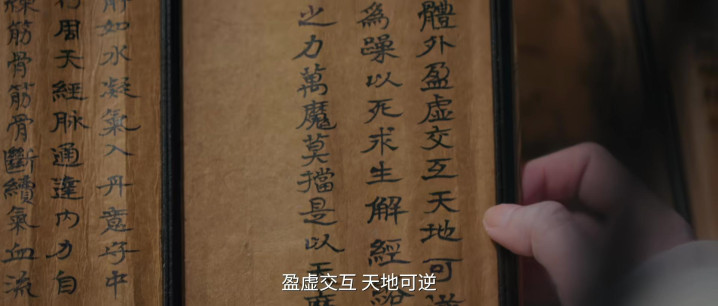 體外盈虛交互天地可逆
為躁以死求生解經
之力萬魔莫擋是以天
解如水凝氣入丹意守中
行周天經脈通達內力自
筋骨筋骨斷續氣血流
盈虚交互 天地可逆